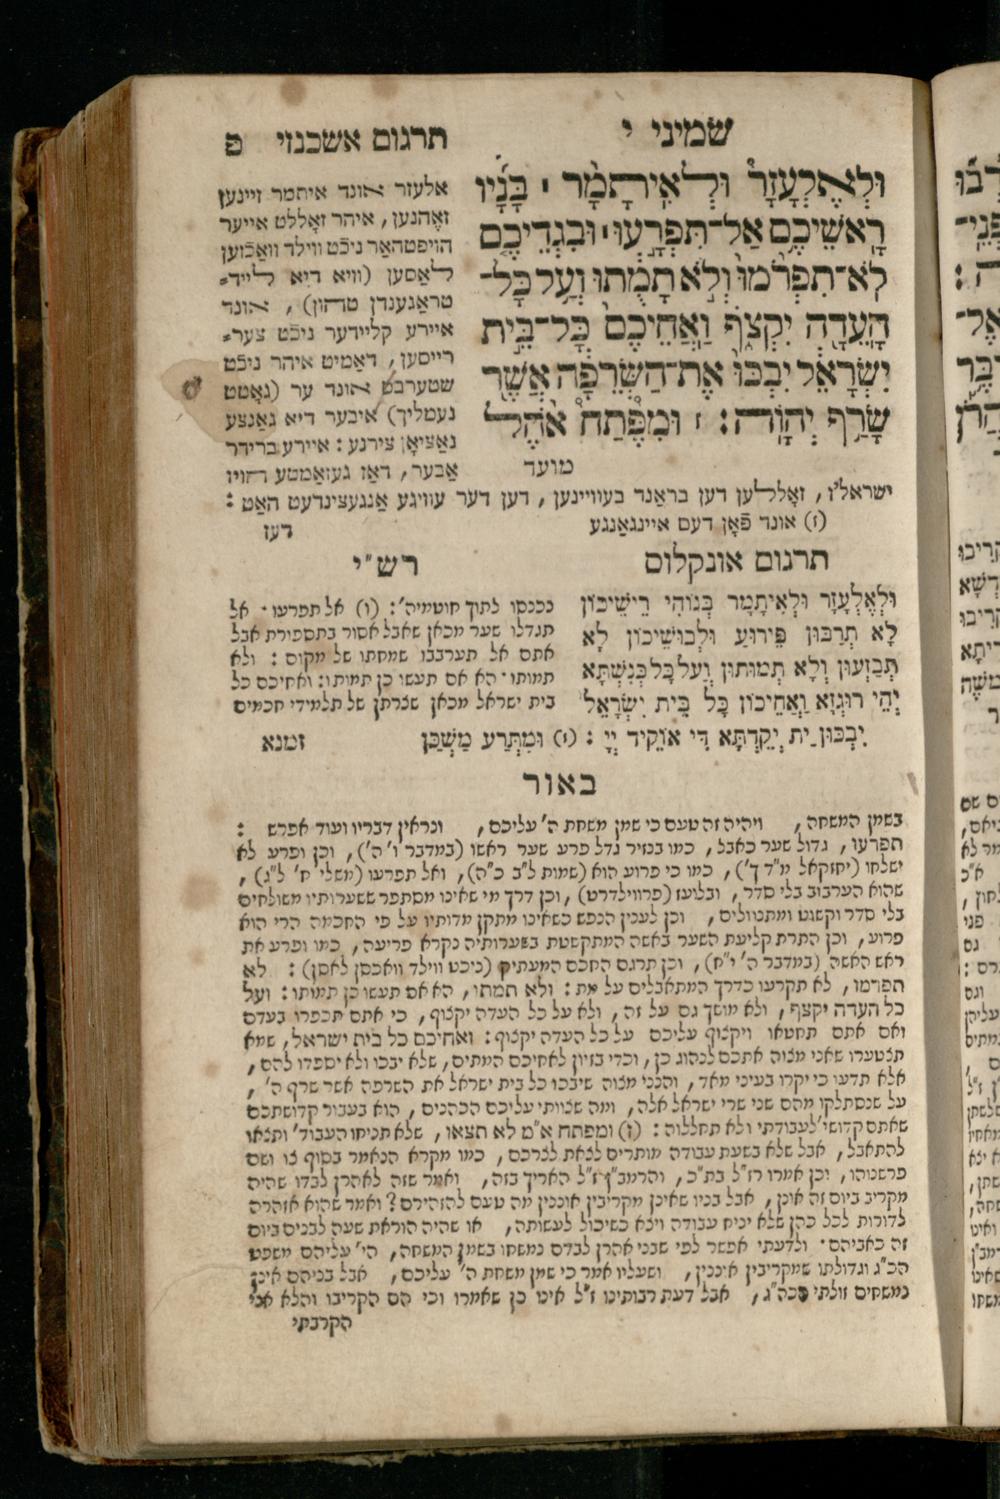 שמיני י
תרגום אשכנזי פ
וּלְאֶלְעָזָר וּלְאִיתָמָר ׀ בָּנָיו
רָאשֵׁיכֶם אַל־תִּפְרָעוּ׀ וּבִגְדֵיכֶם
לֹא־תִפְרֹמוּ וְלֹא תָמֻתוּ וְעַל כָּל־
הָעֵדָה יִקְצֹף וַאֲחֵיכֶם כָּל־בֵּית
יִשְׂרָאֵל יִבְכּוּ אֶת־הַשְּׂרֵפָה אֲשֶׁר
שָׂרַף יְהוָה׃ ז וּמִפֶּתַח אֹהֶל
מועד
אלעזר אונד איתמר זיינען
זאָהנען, איהר זאָללט אייער
הויפטהאַר ניכֿט ווילד וואַכֿזען
לאַסען (וויא דיא לייד⸗
טראַגענדן טהון), אונד
איירע קליידער ניכֿט צער⸗
רייסען, דאַמיט איהר ניכֿט
שטערבט אונד ער (גאָטט
נעמליך) איבער דיא גאַנצע
נאַציאָן צירנע: איירע ברידר
אַבער, דאַז געזאַמטע הויז
ישראל'ז, זאָללען דען בראַנד בעוויינען, דען דער עוויגע אַנגעצינדעט האַט:
(ז) אונד פֿאָן דעם איינגאַנגע
דעז
תרגום אונקלוס
וּלְאֶלְעָזָר וּלְאִיתָמָר בְּנוֹהִי רֵישֵׁיכוֹן
לָא תְרַבּוּן פֵּירוּעַ וּלְבוּשֵׁיכוֹן לָא
תְבַזְּעוּן וְלָא תְמוּתוּן וְעַל כָּל כְּנִשְׁתָּא
יְהֵי רוּגְזָא וַאֲחֵיכוֹן כָּל בֵּית יִשְׂרָאֵל
יִבְכּוּן יַת יְקֵדְתָּא דִּי אוֹקִיד יְיָ: (ז) וּמִתְּרַע מַשְׁכַּן
זמנא
רש"י
נכנסו לתוך חוטמיה': (ו) אל תפרעו. אל
תגדלו שער מכאן שאבל אסור בתספורת אבל
אתם אל תערבבו שמחתו של מקום: ולא
תמותו. הא אם תעשו כן תמותו: ואחיכם כל
בית ישראל מכאן שצרתן של תלמידי חכמים
באור
בשמן המשחה, ויהיה זה טעם כי שמן משחת ה' עליכם, ונראין דבריו ועוד אפרש:
תפרעו, גדול שער כאבל, כמו בנזיר גדל פרע שער ראשו (במדבר ו' ה'), וכן ופרע לא
ישלחו (יחזקאל מ"ד ך'), כמו כי פרוע הוא (שמות ל"ב כ"ה), ואל תפרעו (משלי ח' ל"ג),
שהוא הערבוב בלי סדר, ובלועז (פרווילדרט), וכן דרך מי שאינו מסתפר ששערותיו משולחים
בלי סדר וקשוט ומתנוולים, וכן לענין הנפש כשאינו מתקן מדותיו על פי החכמה הרי הוא
פרוע, וכן התרת קליעת השער באשה המתקשטת בשערותיה נקרא פריעה, כמו ופרע את
ראש האשה (במדבר ה' י"ח), וכן תרגם החכם המעתיק (ניכט ווילד וואכסן לאסן): לא
תפרמו, לא תקרעו כדרך המתאבלים על מת: ולא תמתו, הא אם תעשו כן תמותו: ועל
כל העדה יקצף, ולא מושך גם על זה, ולא על כל העדה יקצוף, כי אתם תכפרו בעדם
ואם אתם תחטאו ויקצוף עליכם על כל העדה יקצוף: ואחיכם כל בית ישראל, שמא
תצטערו שאני מצוה אתכם לנהוג כן, וכדי בזיון לאחיכם המתים, שלא יבכו ולא יספדו להם,
אלא תדעו כי יקרו בעיני מאד, והנני מצוה שיבכו כל בית ישראל את השרפה אשר שרף ה',
על שנסתלקו מהם שני שרי ישראל אלה, ומה שצויתי עליכם הכהנים, הוא בעבור קדושתכם
שאתם קדושי' לעבודתי ולא תחללוה: (ז) ומפתח א"מ לא תצאו, שלא תניחו העבוד' ותצאו
להתאבל, אבל שלא בשעת עבודה מותרים לצאת לצרכם, כמו מקרא הנאמר בסוף צו ושם
פרשנוהו, וכן אמרו רז"ל בת"כ, והרמב"ן ז"ל האריך בזה, ואמר שזה לאהרן לבדו שהיה
מקריב ביום זה אונן, אבל בניו שאינן מקריבין אוננין מה טעם להזהירם? ואמר שהוא אזהרה
לדורות לכל כהן שלא יניח עבודה ויצא כשיכול לעשותה, או שהיה הוראת שעה לבנים ביום
זה כאביהם. ולדעתי אפשר לפי שבני אהרן לבדם נמשחו בשמן המשחה, הי' עליהם משפט
הכ"ג וגדולתו שמקריבין אוננין, ושעליו אמר כי שמן משחת ה' עליכם, אבל בניהם אינן
נמשחים זולתי הכה"ג, אבל דעת רבותינו ז"ל אינו כן שאמרו וכי הם הקריבו והלא אני
הקרבתי